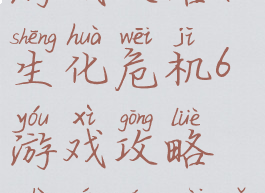 shēng huà wēi jī
生化危机6
yóu xì gōng lüè
游戏攻略